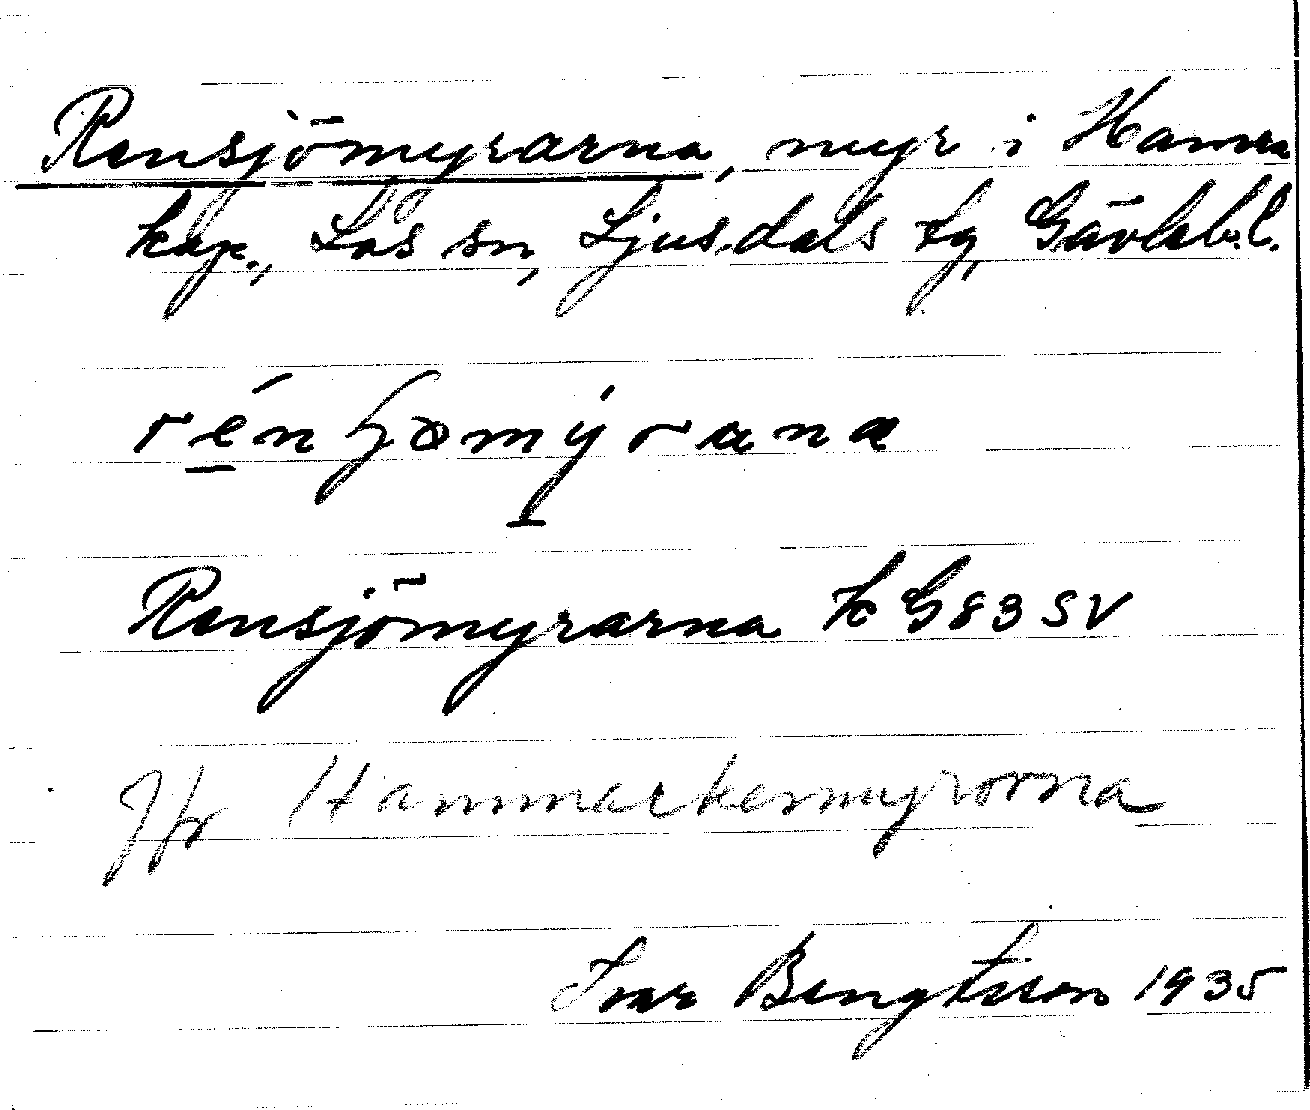 Rensjömyrarna, myr i Hamra
kap., Los sn, Ljusdals tg, Gävleb.l.
Rensjömyrarna k G83 SV
Jfr Hammarkenmyrorna
Ivar Bengtsson 1935